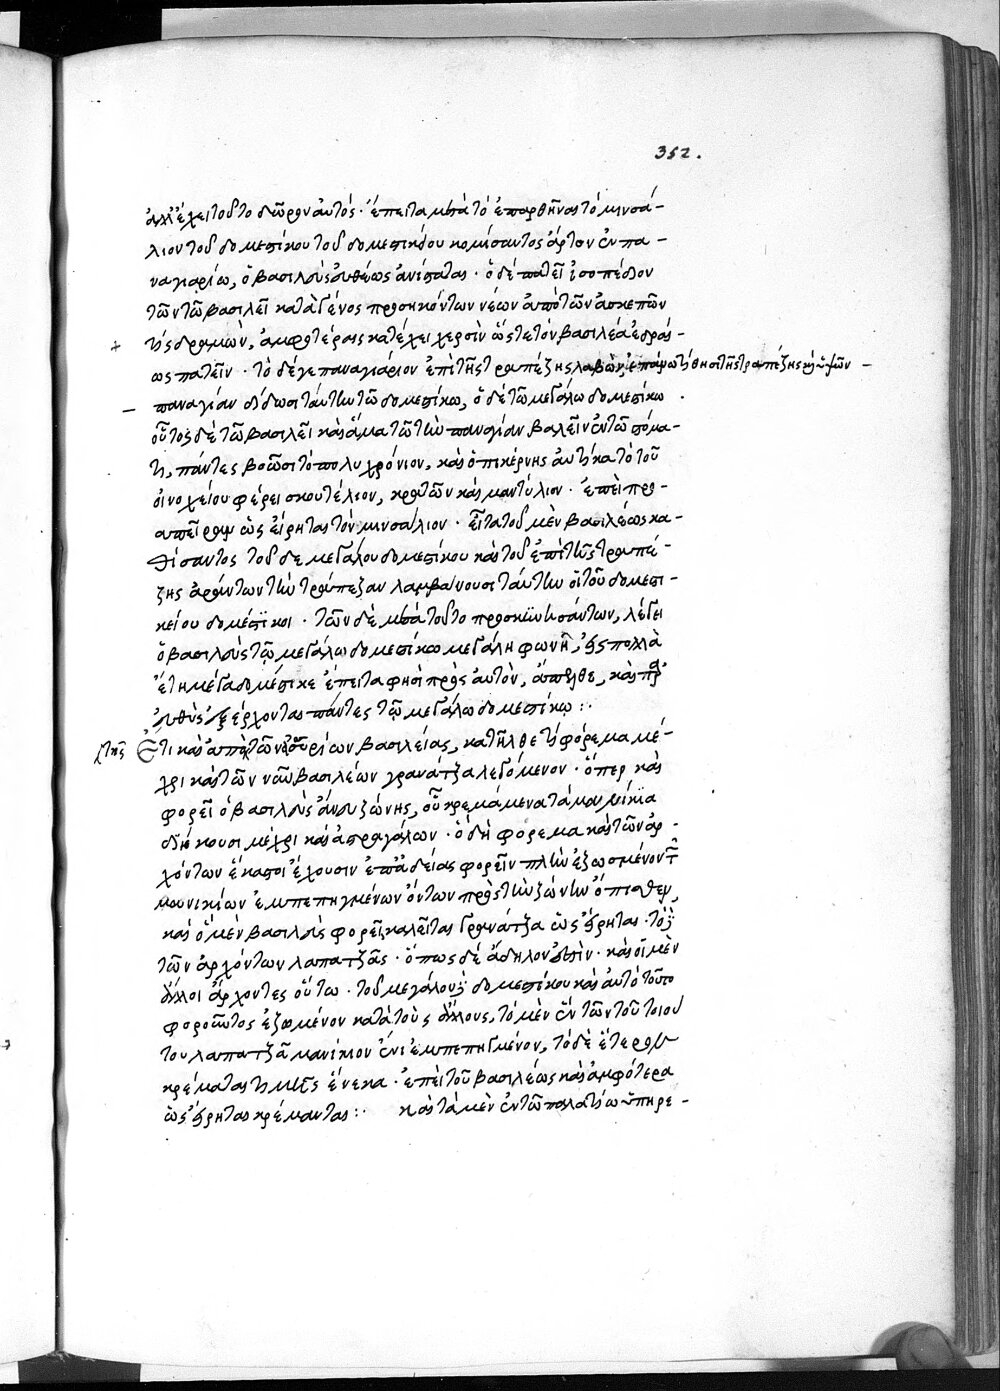 352.
ἀλλ' ἔχει τοῦτο δῶρον αὐτός· ἔπειτα μετὰ τὸ ἐπαρθῆναι τὸ μινσά-
λιον τοῦ δομεστίκου τοῦ δομεστικίου κομίσαντος ἄρτον ἐν πα-
ναγιαρίω, ὁ βασιλεὺς εὐθέως ἀνίσταται· ὁ δὲ πατεῖ ἰσοπέδιον
τῶν τῶ βασιλεῖ κατὰ γένος προσηκόντων νέων ἀπὸ τῶν ἀσκεπῶν
τίς δραμὼν, ἀμφοτέραις κατέχει χερσὶν ὥστε τὸν βασιλέα ἑδραί-
ως πατεῖν· τὸ δέ γε παναγιάριον ἐπὶ τῆς τραπέζης λαβὼν ὁ ἐπάνω τιθησι τῆς τραπέζης καὶ ὑψῶν
παναγίαν δίδωσι ταύτην τῶ δομεστίκω, ὁ δὲ τῶ μεγάλω δομεστίκω
οὗτος δὲ τῶ βασιλεῖ καὶ ἅμα τῶ τὴν παναγίαν βαλεῖν ἐν τῶ στόμα-
τι, πάντες βοῶσι τὸ πολυχρόνιον, καὶ ὁ πικέρνης αὐτίκα τὸ τοῦ
οἰνοχείου φέρει σκουτέλιον, κρατῶν καὶ μαντύλιον· ἐπεὶ προ-
απεῖρον ὡς εἴρηται τὸν μινσάλιον· εἶτα τοῦ μὲν βασιλέως κα-
θίσαντος τοῦ δὲ μεγάλου δομεστίκου καὶ τοῦ ἐπὶ τῆς τραπέ-
ζης ἀράντων τὴν τράπεζαν λαμβάνουσι ταύτην οἱ τοῦ δομεστι-
κείου δομέστικοι· τῶν δὲ μετὰ τοῦτο προσκυνησάντων, λέγει
ὁ βασιλεὺς τῷ μεγάλω δομεστίκω μεγάλη φωνῆ, εἰς πολλὰ
ἔτη μέγα δομέστικε ἔπειτα φησὶ πρὸς αὐτὸν, ἄπελθε, καὶ παρ'
εὐθὺς ἐξέρχονται πάντες τῷ μεγάλω δομεστίκω :·
Ἔτι καὶ ἀπὸ τῶν ἀσσυρίων βασιλείας, κατῆλθέ τι φόρεμα μέ-
χρι καὶ τῶν νῦν βασιλέων γρανάτζα λεγόμενον· ὅπερ καὶ
φορεῖ ὁ βασιλεὺς ἄνευ ζώνης, οὗ κρεμάμενα τὰ μανίκια
διήκουσι μέχρι καὶ ἀστραγάλων· ὁ δὴ φόρεμα καὶ τῶν ἀρ-
χόντων ἕκαστοι ἔχουσιν ἐπ' ἀδείας φορεῖν πλὴν ἐζωσμένον τῶν
μανικίων ἐμπεπηγμένων ὄντων πρὸς τὴν ζώνην ὄπισθεν,
καὶ ὃ μὲν βασιλεὺς φορεῖ, καλεῖται γρανάτζα ὡς εἴρηται· τὸ δὲ
τῶν ἀρχόντων λαπατζᾶς· ὅπως δὲ ἄδηλον ἐστίν· καὶ οἱ μὲν
ἄλλοι ἄρχοντες οὕτω· τοῦ μεγάλου δὲ δομεστίκου καὶ αὐτὸ τοῦτο
φοροῦντος ἐζωμένον κατὰ τοὺς ἄλλους, τὸ μὲν ἓν τῶν τοῦ τοιού
του λαπατζᾶ μανίκιον ἐνὶ ἐμπεπηγμένον, τὸ δὲ ἕτερον
κρέμαται τιμῆς ἕνεκα· ἐπεὶ τοῦ βασιλέως καὶ ἀμφότερα
ὡς εἴρηται κρέμανται :· καὶ τὰ μὲν ἐν τῶ παλατίω ὑπηρε-